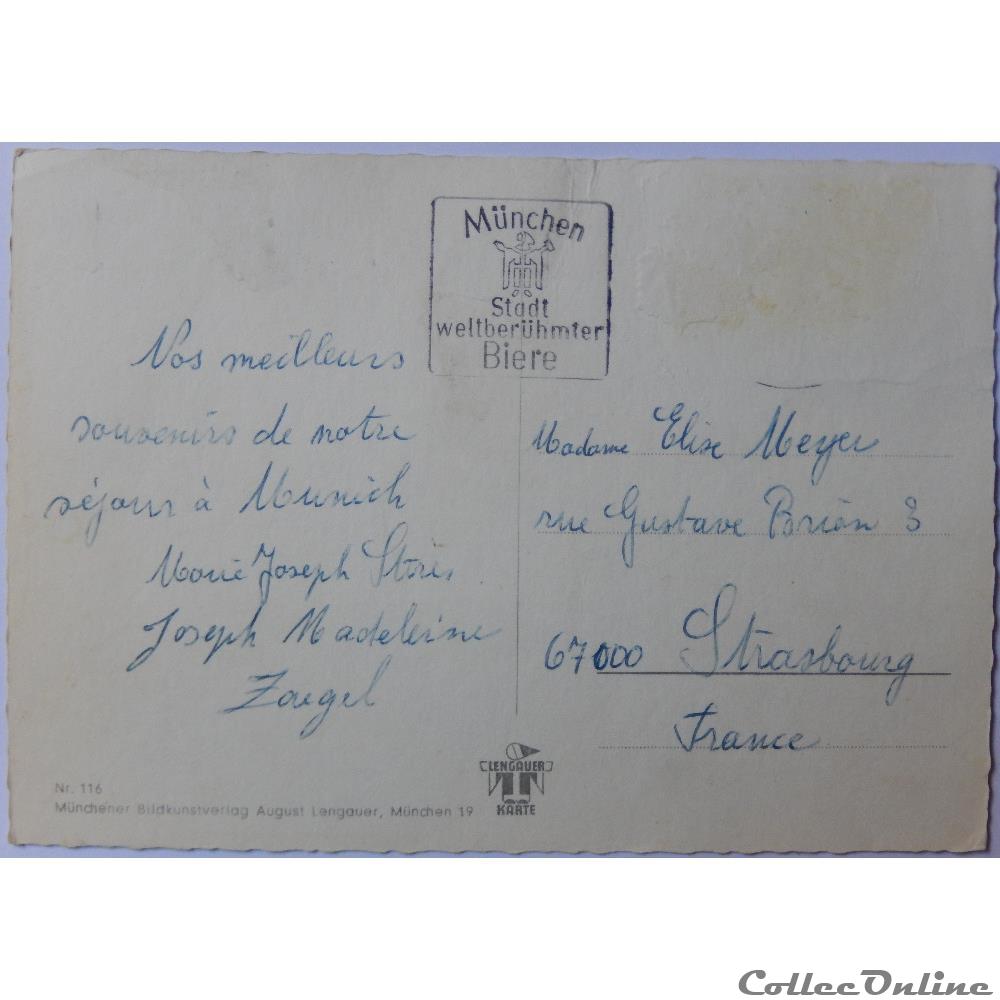 München
Stadt
weltberühmter
Biere
Nos meilleurs
souvenirs de notre
séjour à Munich
Marie Joseph
Joseph Madeleine
Zaegel
Madame Elise Meyer
rue Gustave Brion 3
67000 Strasbourg
France
LENGAUER
KARTE
Nr. 116
Münchener Bildkunstverlag August Lengauer, München 19
CollecOnline